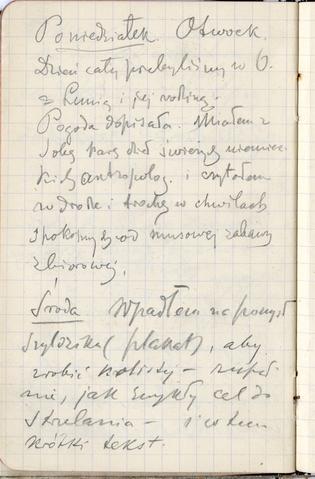 Poniedziałek. Otwock.
Dzień cały przebyliśmy w O.
z Lunią i jej rodziną.
Pogoda dopisała. Miałem z
sobą parę dzieł świeżych niemiec-
kich antropolog. i czytałem
w drodze i trochę w chwilach
spokojnych od musowej zabawy
zbiorowej.
Środa Wpadłem na pomysł
szyldzika (plakat), aby
zrobić kolisty — zupeł-
nie, jak zwykły cel do
strzelania — i w tem
krótki tekst.